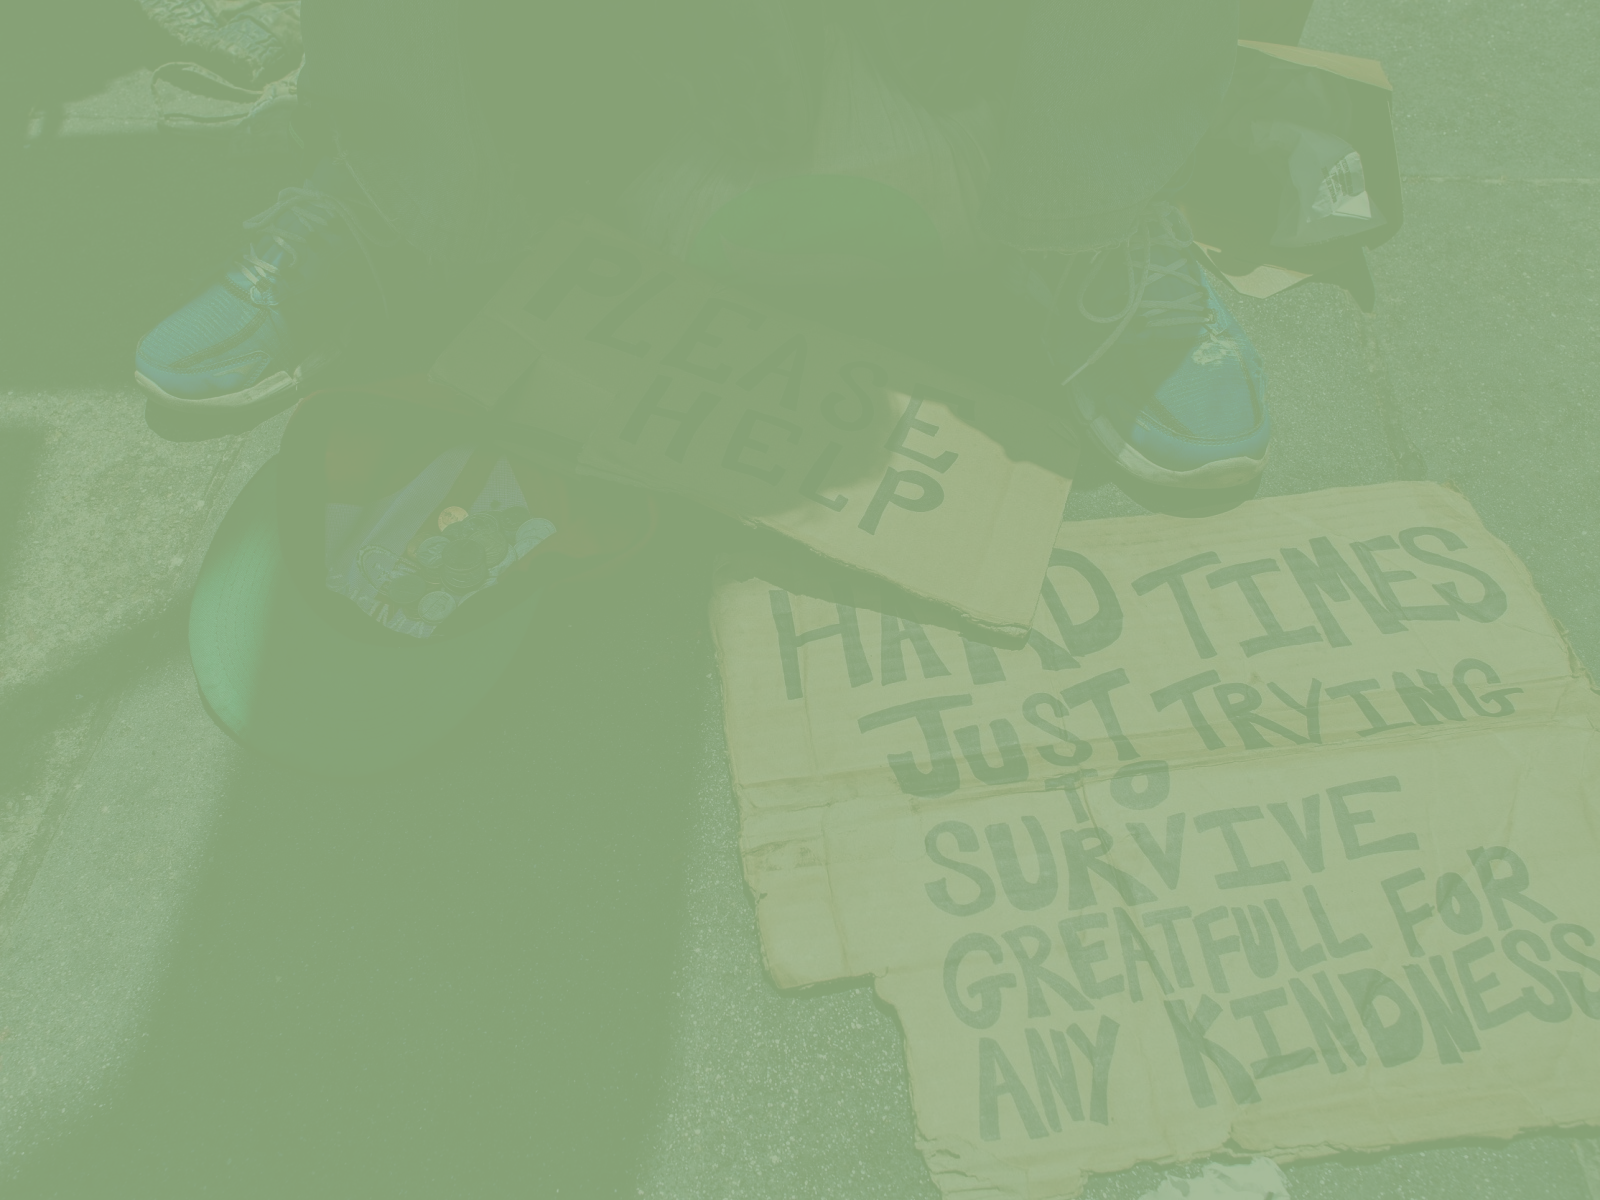 PLEASE
HELP
HARD TIMES
JUST TRYING
TO
SURVIVE
GREATFULL FOR
ANY KINDNESS